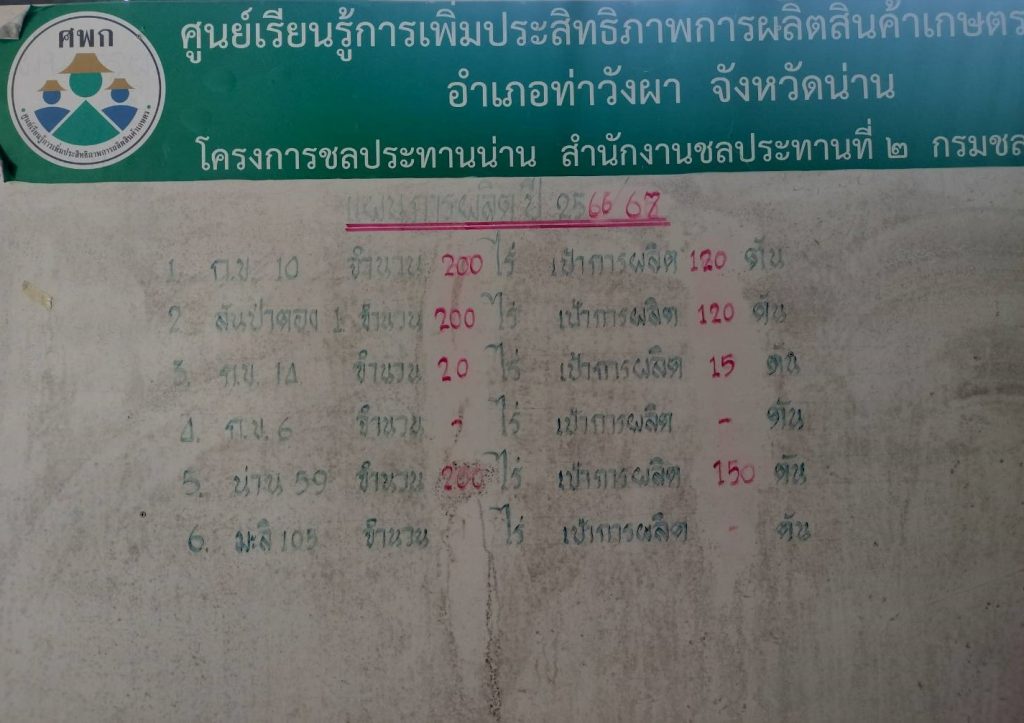 ศพก
ศูนย์เรียนรู้การเพิ่มประสิทธิภาพการผลิตสินค้าเกษตร
ศูนย์เรียนรู้การเพิ่มประสิทธิภาพการผลิตสินค้าเกษตร
อำเภอท่าวังผา จังหวัดน่าน
โครงการชลประทานน่าน สำนักงานชลประทานที่ ๒ กรมชล
แผนการผลิต ปี 2566/67
1. ก.ข. 10 จำนวน 200 ไร่ เป้าการผลิต 120 ตัน
2 สันป่าตอง 1 จำนวน 200 ไร่ เป้าการผลิต 120 ตัน
3. ก.ข. 14 จำนวน 20 ไร่ เป้าการผลิต 15 ตัน
4. ก.ข. 6 จำนวน - ไร่ เป้าการผลิต - ตัน
5. น่าน 59 จำนวน 200 ไร่ เป้าการผลิต 150 ตัน
6. มะลิ 105 จำนวน ไร่ เป้าการผลิต - ตัน